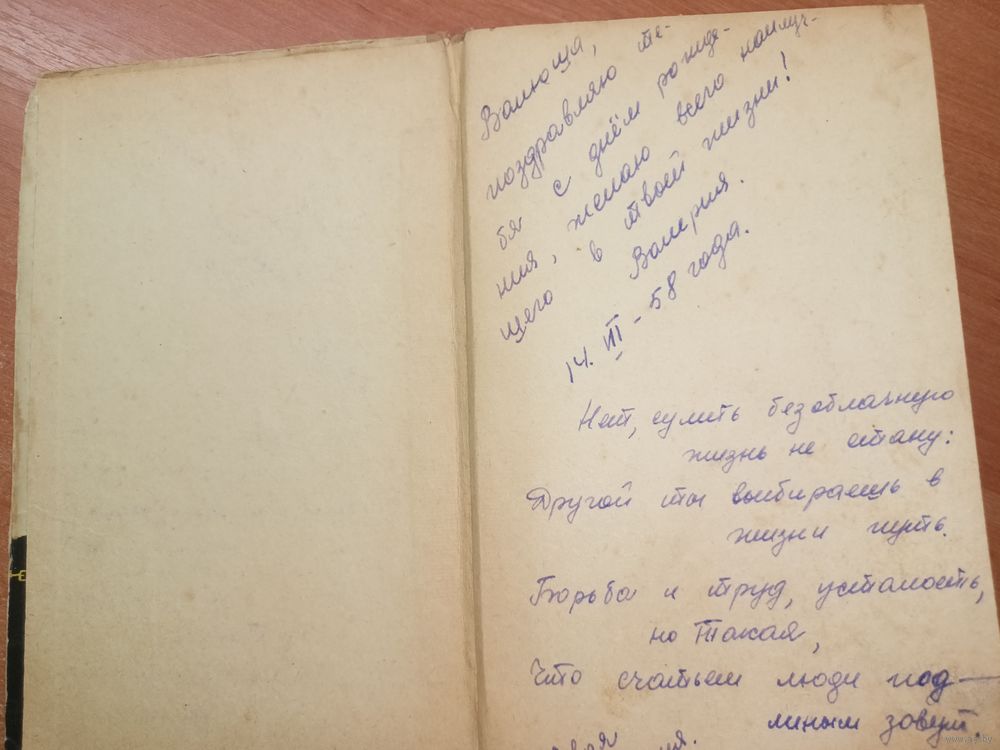 Валюша,
поздравляю те-
бя с днём рожде-
ния, желаю всего наилуч-
щего в твоей жизни!
Валерия.
14. III - 58 года.
Нет, сулить безоблачную
жизнь не стану:
Другой ты выбираешь в
жизни путь.
Борьба и труд, усталость,
но такая,
Что счастьем люди под-
линым зовут.